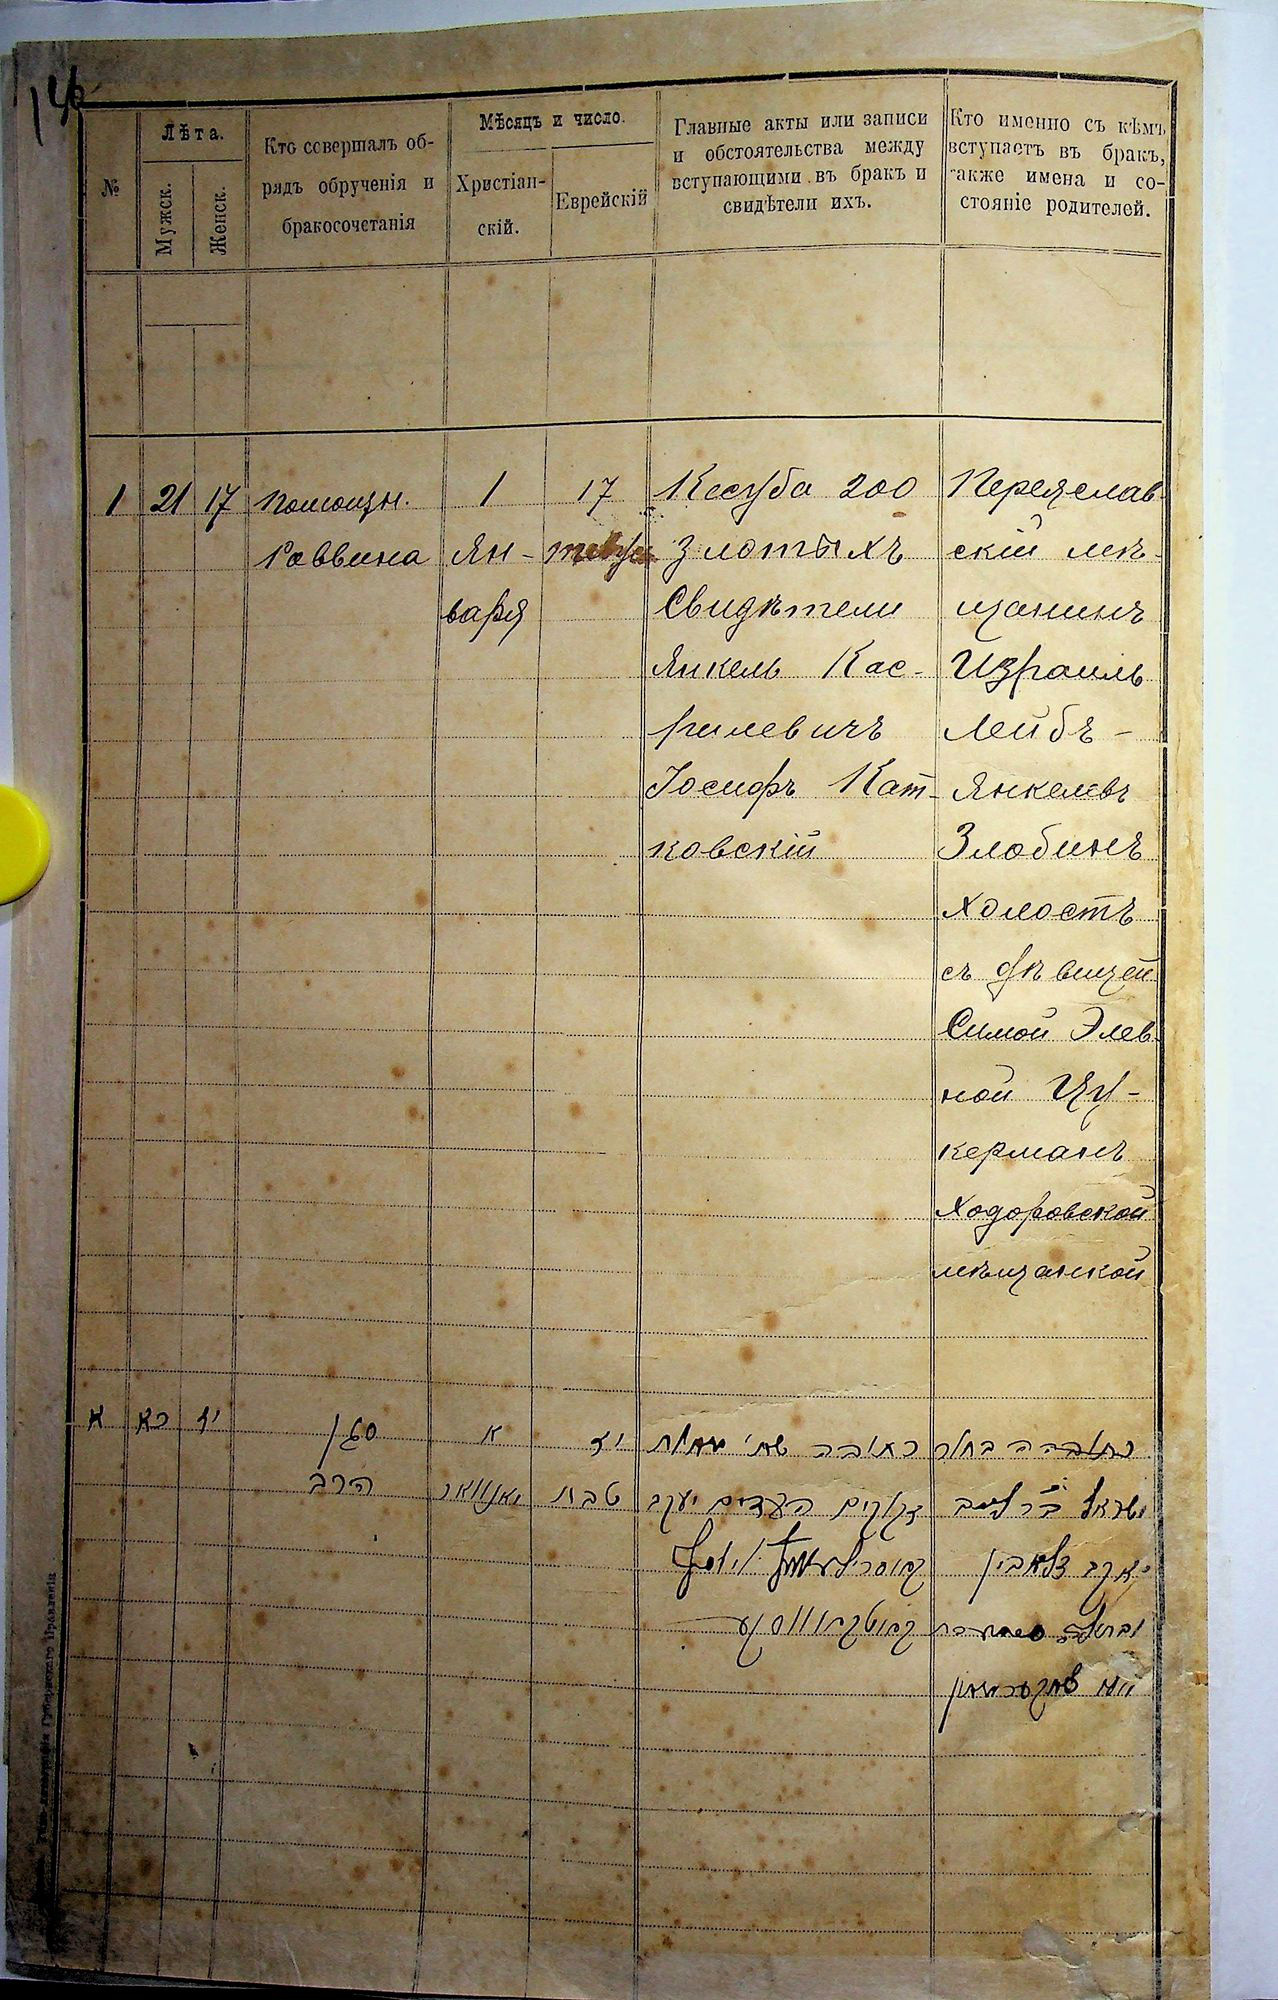 146
№
Лѣта.
Мужск.
Женск.
Кто совершалъ об-
рядъ обрученія и
бракосочетанія
Мѣсяцъ и число.
Христіан-
скій.
Еврейскій
Главные акты или записи
и обстоятельства между
вступающими въ бракъ и
свидѣтели ихъ.
Кто именно съ кѣмъ
вступаетъ въ бракъ,
также имена и со-
стояніе родителей.
1 21 17
Помощн.
Раввина
1
Ян-
варя
17
Кесуба 200
Злотыхъ
Свидѣтели
Янкель Кас-
рилевичъ
Іосифъ Кат-
ковскій
Переяслав-
скій мѣ-
щанинъ
Израиль
Лейбъ-
Янкелевъ
Злобинъ
холостъ
съ дѣвицей
Симой Элев-
ной Цу-
керманъ
Ходоровской
мѣщанской
א כא יז
סגן
הרב
א
יאנוואר
יז
טבת
כתובה שתי מאות
זקוקים העדים יעקב
הבחור
ישראל